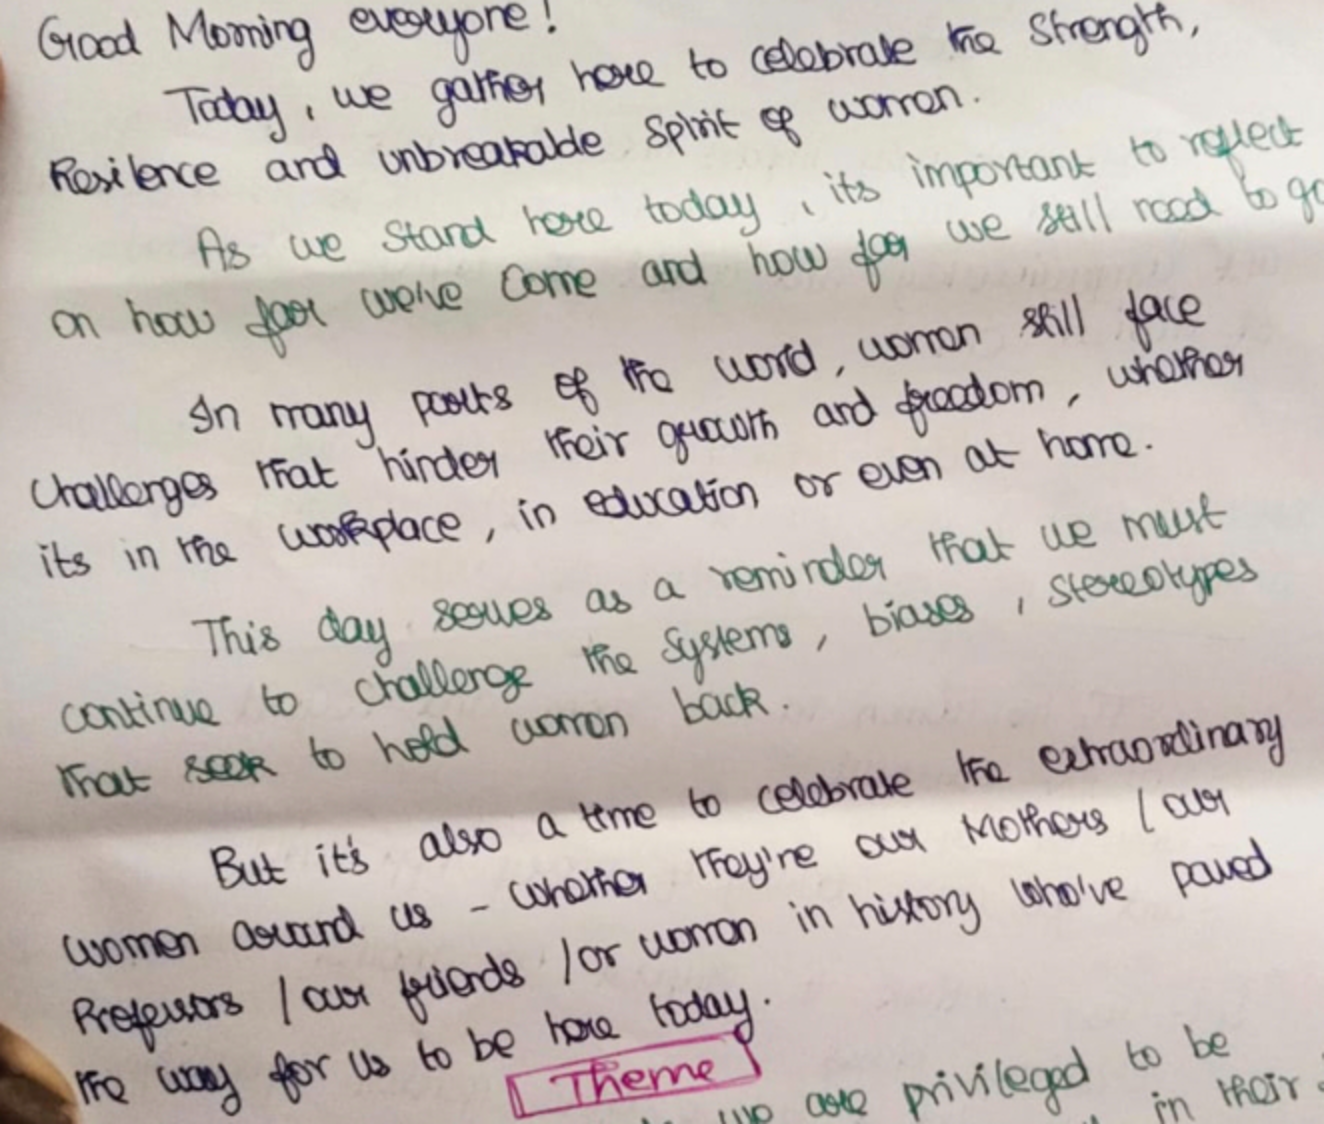 Good Morning everyone!
Today, we gather here to celebrate the Strength,
Resilence and unbreakable Spirit of women.
As we stand here today, its important to reflect
on how far we've come and how far we still need to go
In many parts of the word, women still face
challenges that hinder their growth and freedom, whether
its in the workplace, in education or even at home.
This day serves as a reminder that we must
continue to challenge the systems, biases, stereotypes
that seek to hold women back.
But it's also a time to celebrate the extraordinary
women around us - whether they're our Mothers / our
Professors / our friends / or women in history who've paved
the way for us to be here today.
Theme
we are privileged to be
in their